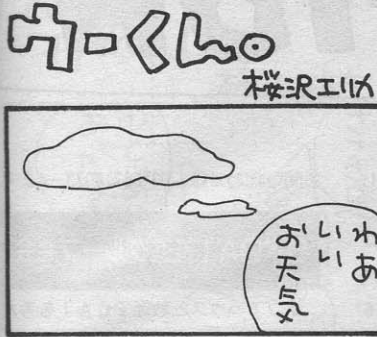 ウーくん。
桜沢エリカ
わあ
いい
お天気